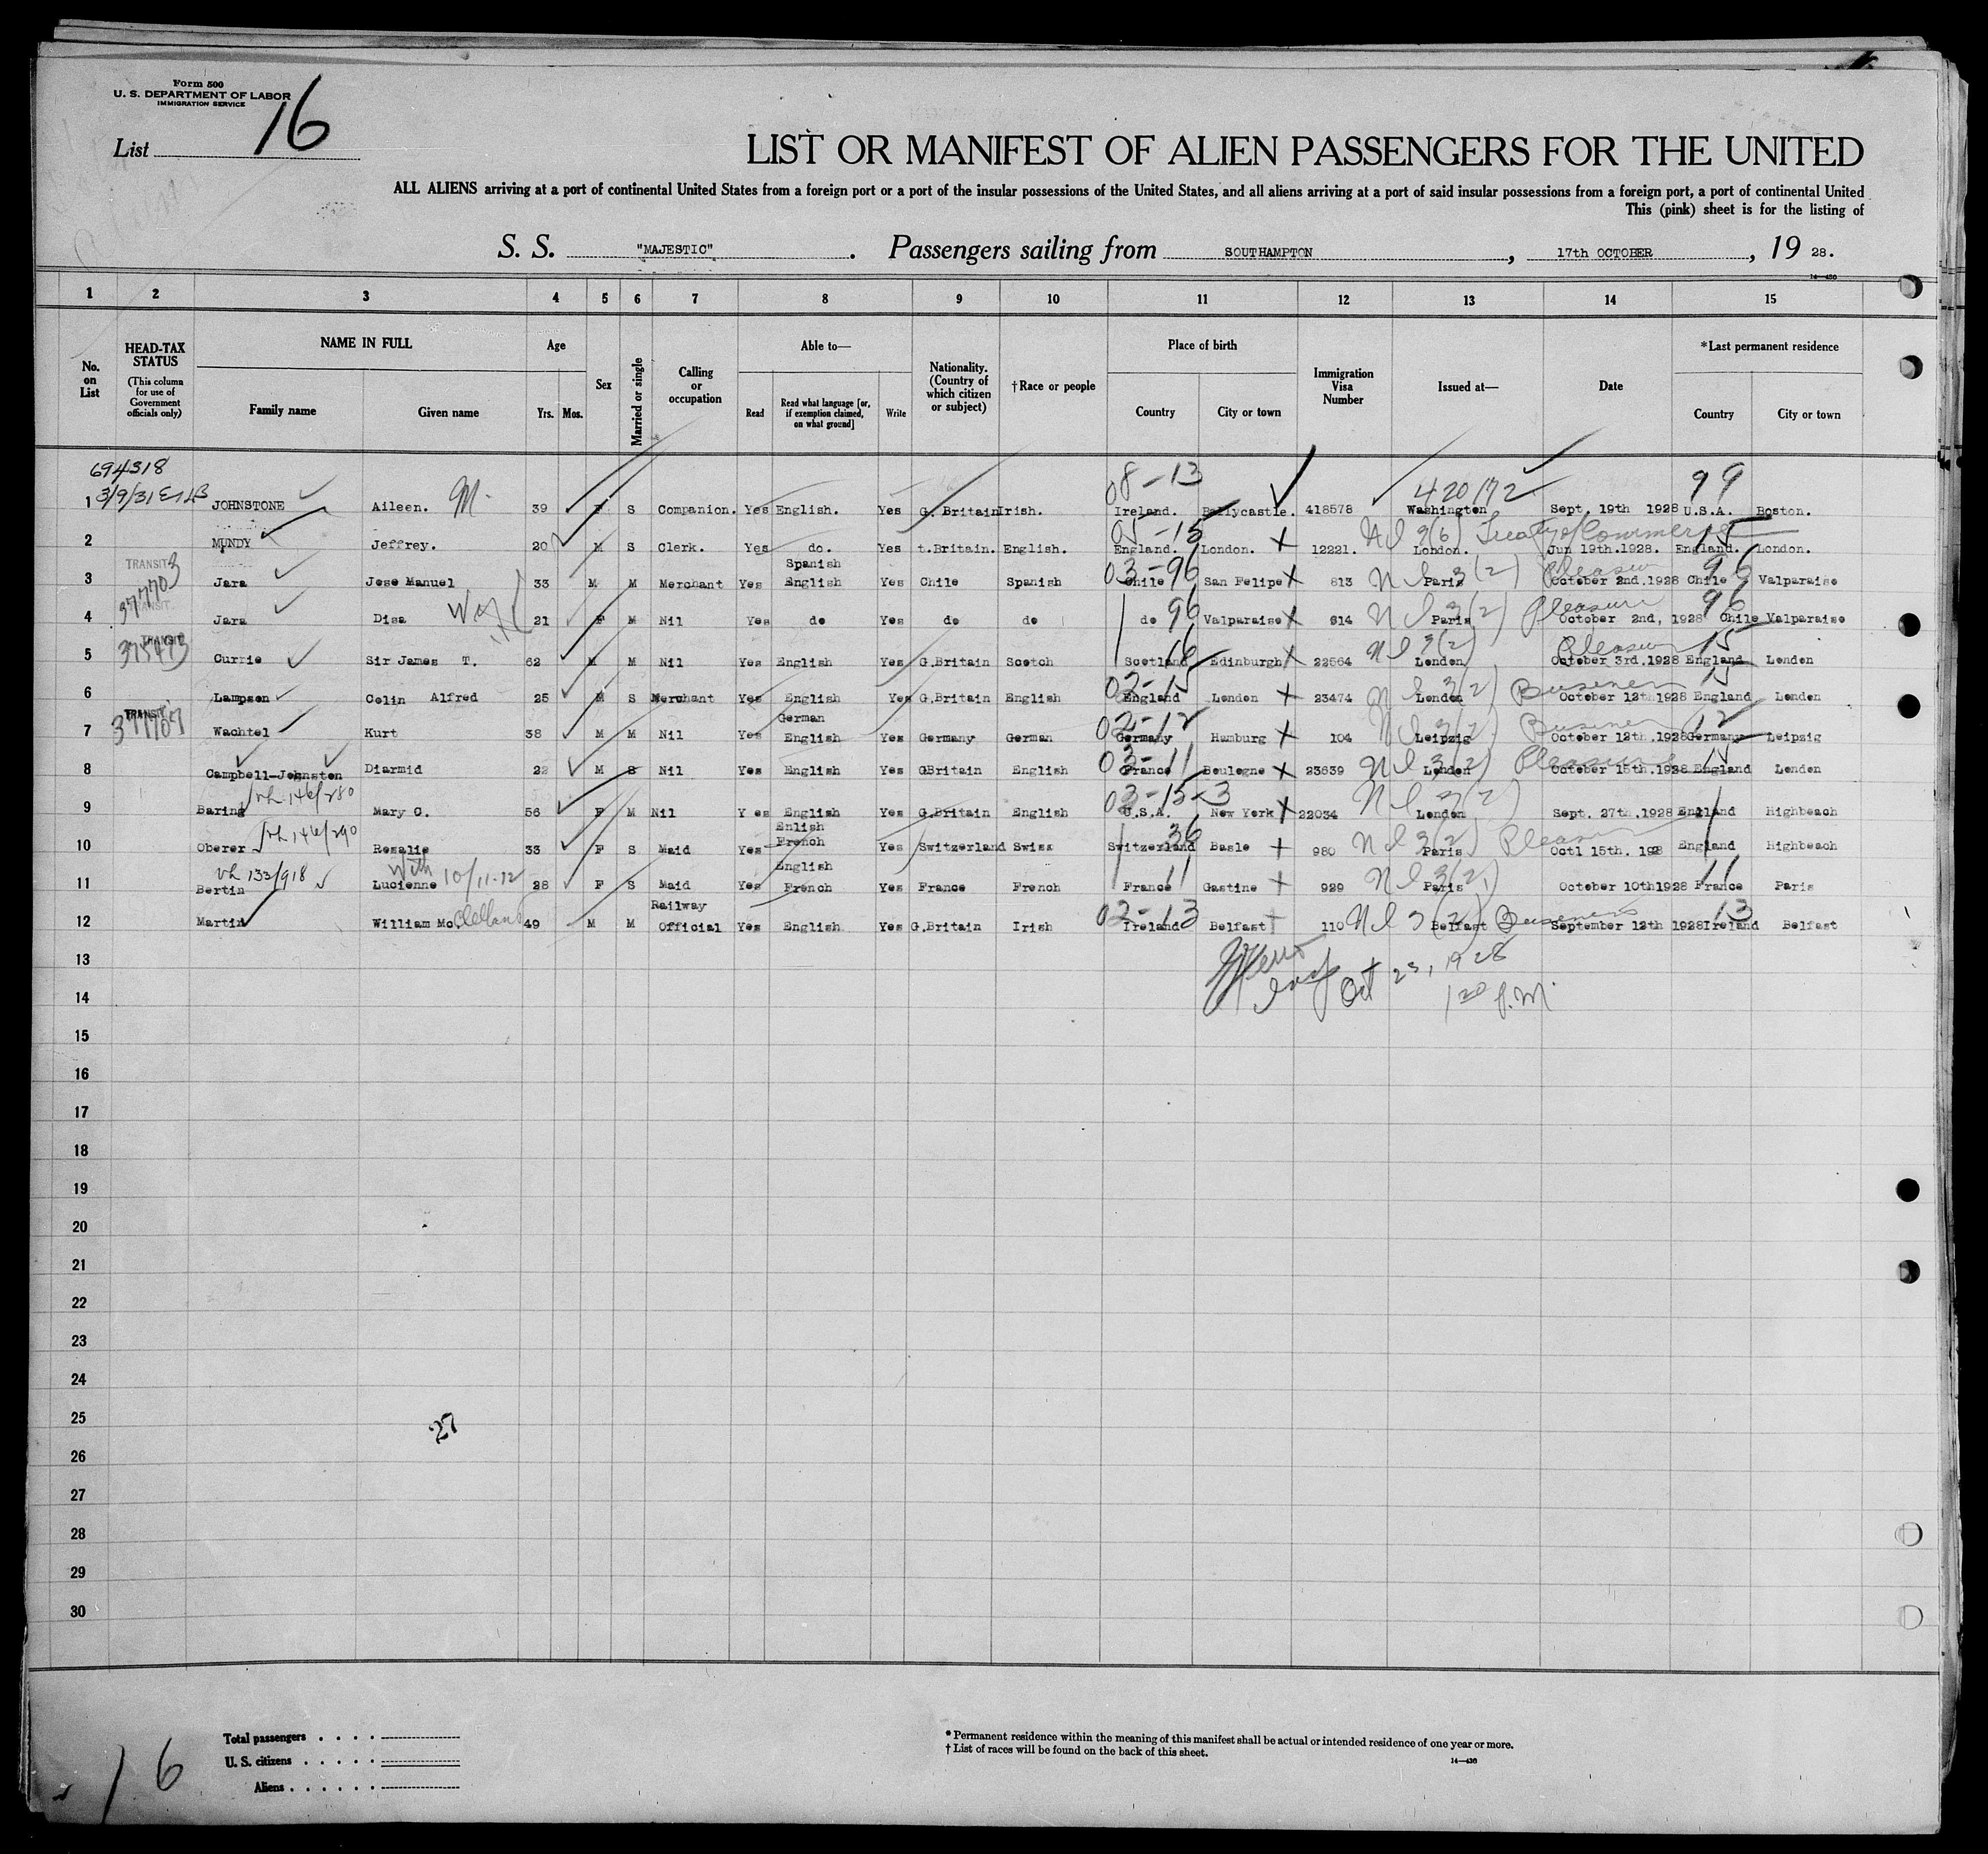 Form 500
U. S. DEPARTMENT OF LABOR
IMMIGRATION SERVICE
List 16
LIST OR MANIFEST OF ALIEN PASSENGERS FOR THE UNITED
ALL ALIENS arriving at a port of continental United States from a foreign port or a port of the insular possessions of the United States, and all aliens arriving at a port of said insular possessions from a foreign port, a port of continental United
This (pink) sheet is for the listing of
S. S. "MAJESTIC". Passengers sailing from SOUTHAMPTON, 17th OCTOBER, 19 28.
14—430
1 2 3 4 5 6 7 8 9 10 11 12 13 14 15
No. on List
HEAD-TAX STATUS (This column for use of Government officials only)
NAME IN FULL Family name Given name
Age Yrs. Mos.
Sex
Married or single
Calling or occupation
Able to— Read Read what language [or, if exemption claimed, on what ground] Write
Nationality. (Country of which citizen or subject)
†Race or people
Place of birth Country City or town
Immigration Visa Number
Issued at—
Date
*Last permanent residence Country City or town
694318 08-13 42017 2 99
3/9/31
1 JOHNSTONE Aileen. M. 39 F S Companion. Yes English. Yes G. Britain Irish. Ireland. Ballycastle. 418578 Washington Sept. 19th 1928 U.S.A. Boston.
05-15 3(6) Treaty of Commerce 15
2 MUNDY Jeffrey. 20 M S Clerk. Yes do. Yes t.Britain. English. England. London. 12221. London. Jun 19th.1928. England. London.
TRANSIT 377703 Spanish 03-96 3(2) Pleasure 96
3 Jara Jose Manuel 33 M M Merchant Yes English Yes Chile Spanish Chile San Felipe 613 Paris October 2nd.1928 Chile Valparaiso
TRANSIT 96 3(2) Pleasure 96
4 Jara Disa 21 F M Nil Yes do Yes do do do Valparaiso 614 Paris October 2nd, 1928 Chile Valparaiso
TRANSIT 16 3(2) Pleasure 15
5 Currie Sir James T. 62 M M Nil Yes English Yes G.Britain Scotch Scotland Edinburgh 22564 London October 3rd.1928 England London
02-15 3(2) Business 15
6 Lampson Colin Alfred 25 M S Merchant Yes English Yes G.Britain English England London 23474 London October 12th1928 England London
TRANSIT 377707 German 02-12 3(2) Business 12
7 Wachtel Kurt 38 M M Nil Yes English Yes Germany German Germany Hamburg 104 Leipzig October 12th.1928 Germany Leipzig
03-11 3(2) Pleasure 15
8 Campbell-Johnston Diarmid 22 M S Nil Yes English Yes GBritain English France Boulogne 23639 London October 15th.1928 England London
vh 146/280 03-15-3 3(2)
9 Baring Mary C. 56 F M Nil Y es English Yes G.Britain English U.S.A. New York 22034 London Sept. 27th.1928 England Highbeach
vh 146/290 Enlish 36 3(2) Pleasure
10 Oberer Rosalie 33 F S Maid Yes French Yes Switzerland Swiss Switzerland Basle 980 Paris Octl 15th. 198 England Highbeach
vh 133/918 With 10/11-12 English 11 3(2) 11
11 Bertin Lucienne 28 F S Maid Yes French Yes France French France Gastine 929 Paris October 10th1928 France Paris
Railway 02-13 3(2) Business 13
12 Martin William McClelland 49 M M Official Yes English Yes G.Britain Irish Ireland Belfast 110 Belfast September 12th 1928 Ireland Belfast
13
Oct 23, 1928
14
1 20 P.M.
15
16
17
18
19
20
21
22
23
24
25
27
26
27
28
29
30
Total passengers
U. S. citizens
Aliens
16
* Permanent residence within the meaning of this manifest shall be actual or intended residence of one year or more.
† List of races will be found on the back of this sheet.
14—430